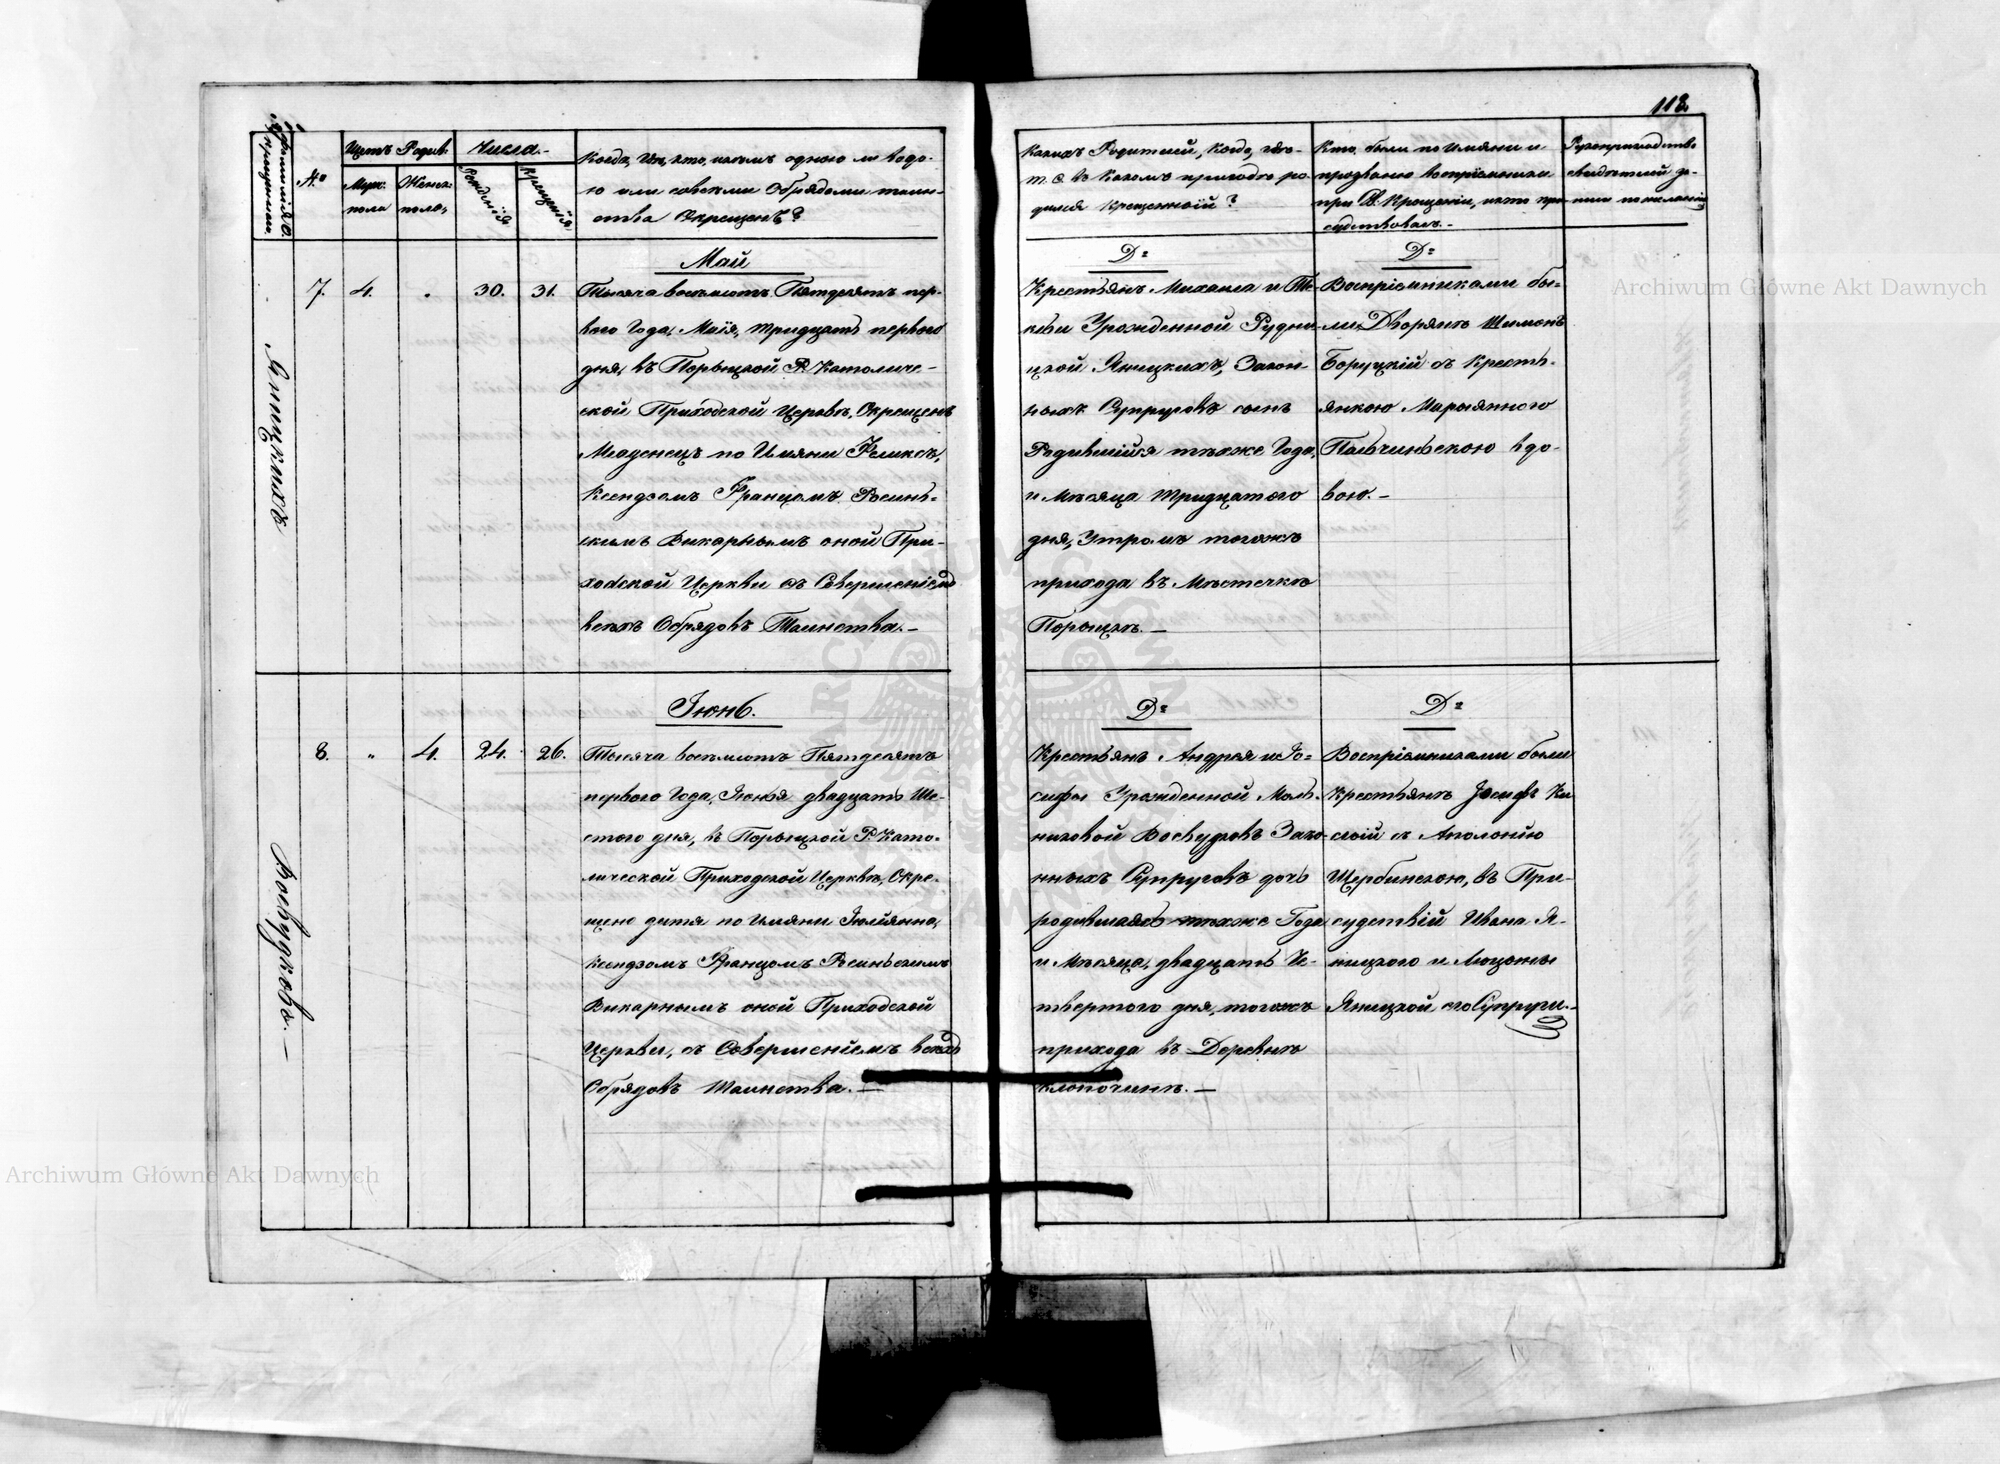 118.
Фамилія О-
крещеннаго.
№
Щетъ Родив:
Муж:
пола
Женск:
пола,
Числа.
Рожденія
Крещенія
Когда, гдѣ, кто, какъ одною ли водо-
ю или совсѣми Обрядами таин-
ства Окрещенъ?
Какихъ Родителей, когда, гдѣ-
т. е. въ какомъ приходѣ ро-
дился крещенной?
Кто были по Имяни и
прозванію воспріемники
при Св. Крещеніи, и кто при-
судствовалъ.
Рукоприкладство
свидѣтелей
Яницкихъ
7. 4. 30. 31.
Май
Тысяча восемьсотъ Пятдесятъ пер-
вого Года, Маія, тридцать первого
дня, въ Порыцкой Р. Католиче-
ской Приходской Церквѣ, Окрещенъ
Младенецъ по Имяни Феликсъ,
Ксендзомъ Францомъ Ясинь-
скимъ Викарнымъ оной При-
ходской Церкви съ Совершеніемъ
всѣхъ Обрядовъ Таинства.—
Dº
Крестьянъ Михаила и Те-
кли Урожденной Рудни-
цкой Яницкихъ, Закон-
ныхъ Супруговъ сынъ
Родившійся тѣхже Года,
и Мѣсяца тридцатого
дня, Утромъ тогожъ
прихода въ Мѣстечкѣ
Порыцкѣ.—
Dº
Воспріемниками бы-
ли Дворянъ Шимонъ
Боруцкій съ Кресть-
янкою Марыянною
вдо-
вою.—
Воевудковъ.—
8. „ 4. 24. 26.
Іюнь.
Тысяча восемьсотъ Пятдесятъ
первого Года, Іюнья двадцать Ше-
стого дня, въ Порыцкой Р. Като-
лической Приходской Церквѣ, Окре-
щено дитя по Имяни Юліянна,
Ксендзомъ Францомъ Ясиньскимъ
Викарнымъ оной Приходской
Церкви, съ Совершеніемъ всѣхъ
Обрядовъ Таинства.—
Dº
Крестьянъ Андрея и Іо-
сифы Урожденной
Воевудковъ Зако-
нныхъ Супруговъ дочь
родившаясь тѣхже Года
и Мѣсяца, двадцать Че-
твертого дня, тогожъ
прихода въ Деревнѣ
Клопочинѣ.—
Dº
Воспріемниками были
Крестьянъ Іосифъ
съ Аполонію
Щербинскою, въ При-
судствій Ивана Я-
ницкого и Люцыны
Яницкой его Супруги.—
Archiwum Główne Akt Dawnych
Archiwum Główne Akt Dawnych